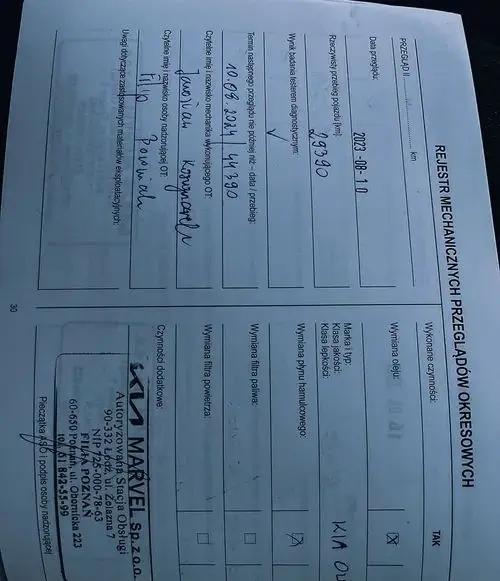 REJESTR MECHANICZNYCH PRZEGLĄDÓW OKRESOWYCH
PRZEGLĄD II ........................ km
Data przeglądu:
2023 -08- 10
Rzeczywisty przebieg pojazdu [km]:
29390
Wynik badania testerem diagnostycznym:
✓
Termin następnego przeglądu nie później niż - data / przebieg:
10.08.2024 / 44390
Czytelne imię i nazwisko mechanika wykonującego OT:
Czytelne imię i nazwisko osoby nadzorującej OT:
Filip
Uwagi dotyczące zastosowanych materiałów eksploatacyjnych:
Wykonane czynności:
TAK
Wymiana oleju:
☒
Marka i typ:
KIA
Klasa jakości:
Klasa lepkości:
Wymiana płynu hamulcowego:
☒
Wymiana filtra paliwa:
☐
Wymiana filtra powietrza:
☐
Czynności dodatkowe:
KIA MARVEL sp. z o.o.
Autoryzowana Stacja Obsługi
90-332 Łódź, ul. Żelazna 7
NIP 725-000-78-63
FILIA POZNAŃ
60-650 Poznań, ul. Obornicka 223
842-55-99
Pieczątka ASO i podpis osoby nadzorującej
30